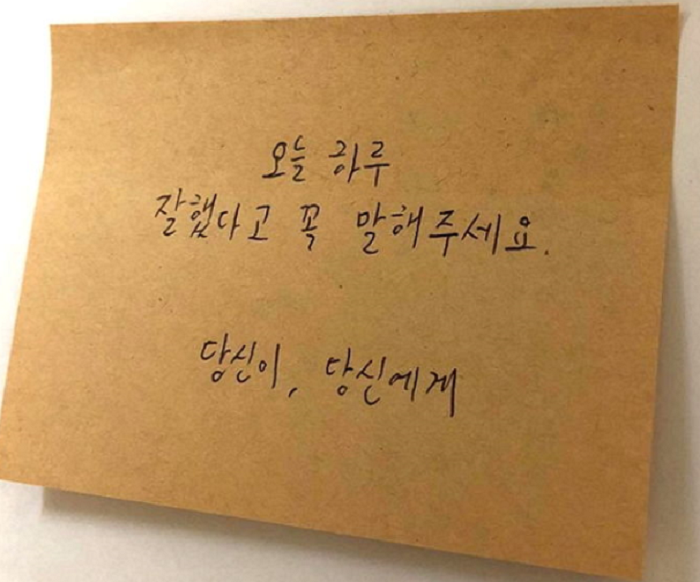 오늘 하루
잘했다고 꼭 말해주세요.
당신이, 당신에게